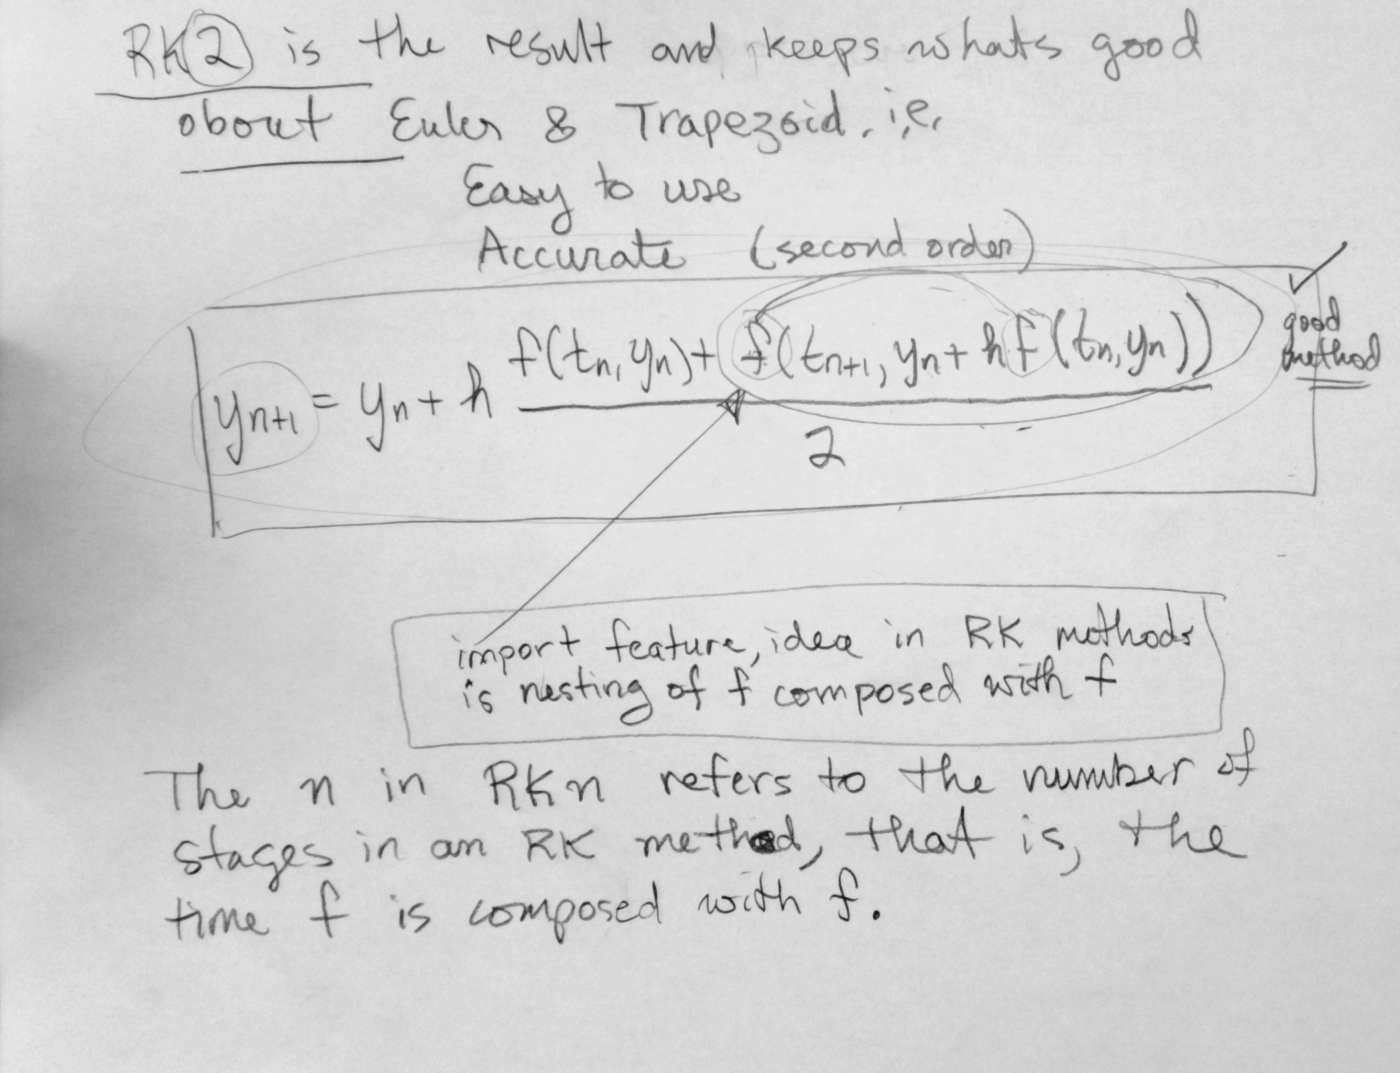 RK2 is the result and keeps whats good
about Euler & Trapezoid. i.e.
Easy to use
Accurate (second order)
good
method
y_{n+1} = y_n + h \frac{f(t_n, y_n) + f(t_{n+1}, y_n + h f(t_n, y_n))}{2}
import feature, idea in RK methods
is nesting of f composed with f
The n in RKn refers to the number of
stages in an RK method, that is, the
time f is composed with f.